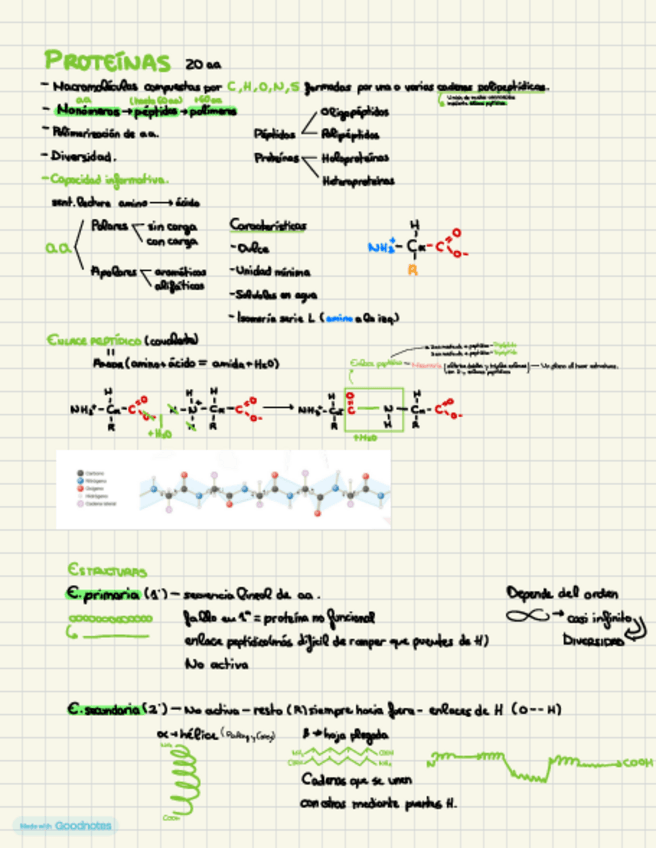 PROTEÍNAS 20 aa
- Macromoléculas compuestas por C,H,O,N,S formadas por una o varias cadenas polipeptídicas.
aa (hasta 50 aa) +50 aa
- Monómeros → péptidos → polímeros
- Polimerización de aa.
- Diversidad.
- Capacidad informativa.
Péptidos
Oligopéptidos
Polipéptidos
Proteínas
Holoproteínas
Heteroproteínas
sent. lectura amino → ácido
a.a.
Polares
sin carga
con carga
Apolares
aromáticos
alifáticos
Características
- Dulce
- Unidad mínima
- Solubles en agua
- Isomería serie L (amino a la izq.)
H
NH₃⁺ - Cα - C
O
O-
R
ENLACE PEPTÍDICO (covalente)
Amida (amino + ácido = amida + H₂O)
Enlace peptídico
NH₃⁺ - Cα - C
H
R
O
+H₂O
H
N⁺ - Cα - C
O
O-
R
→
NH₃⁺ - Cα - C - N - Cα - C
H
R
O
H
H
R
O
O-
+H₂O
Carbono
Nitrógeno
Oxígeno
Hidrógeno
Cadena lateral
ESTRUCTURAS
E. primaria (1ª) - secuencia lineal de aa.
fallo en 1ª = proteína no funcional
enlace peptídico (más difícil de romper que puentes de H)
No activa
Depende del orden
∞ → casi infinito
DIVERSIDAD
E. secundaria (2ª) - No activa - resto (R) siempre hacia fuera - enlaces de H (O-- H)
α → hélice
NH₂
COOH
β → hoja plegada
NH₂ COOH
COOH NH₂
Cadenas que se unen
con otras mediante puentes H.
N COOH
Made with Goodnotes